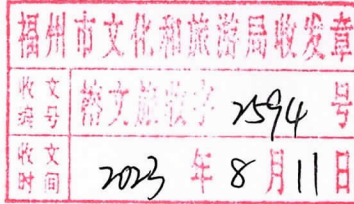 福州市文化和旅游局收发章
收文编号 榕文旅收字 2594 号
收文时间 2023 年 8 月 11 日